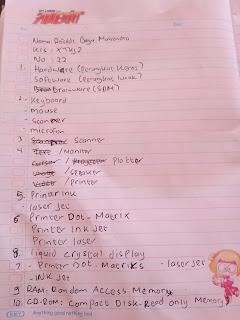 No:
Date:
Nama: Bagir Mahendra
Kls : XTKJ2
No : 22
1. Hardware (Perangkat Keras)
Software (Perangkat lunak)
Brainware (SDM)
2. Keyboard
- mouse
- scanner
- microfon
3. Scanner
4. Text / Monitor
/ Plotter
/ Speaker
Video / Printer
5. Printer ink
- laser jet
6. Printer Dot - Matrix
Printer Ink Jet
Printer laser
8. liquid crystal display
7. - Printer Dot - Matriks - laser jet
- ink Jet
9. RAM: Random Access Memory
10. CD-ROM: Compact Disk-Read only Memory
Anything good nothing bad